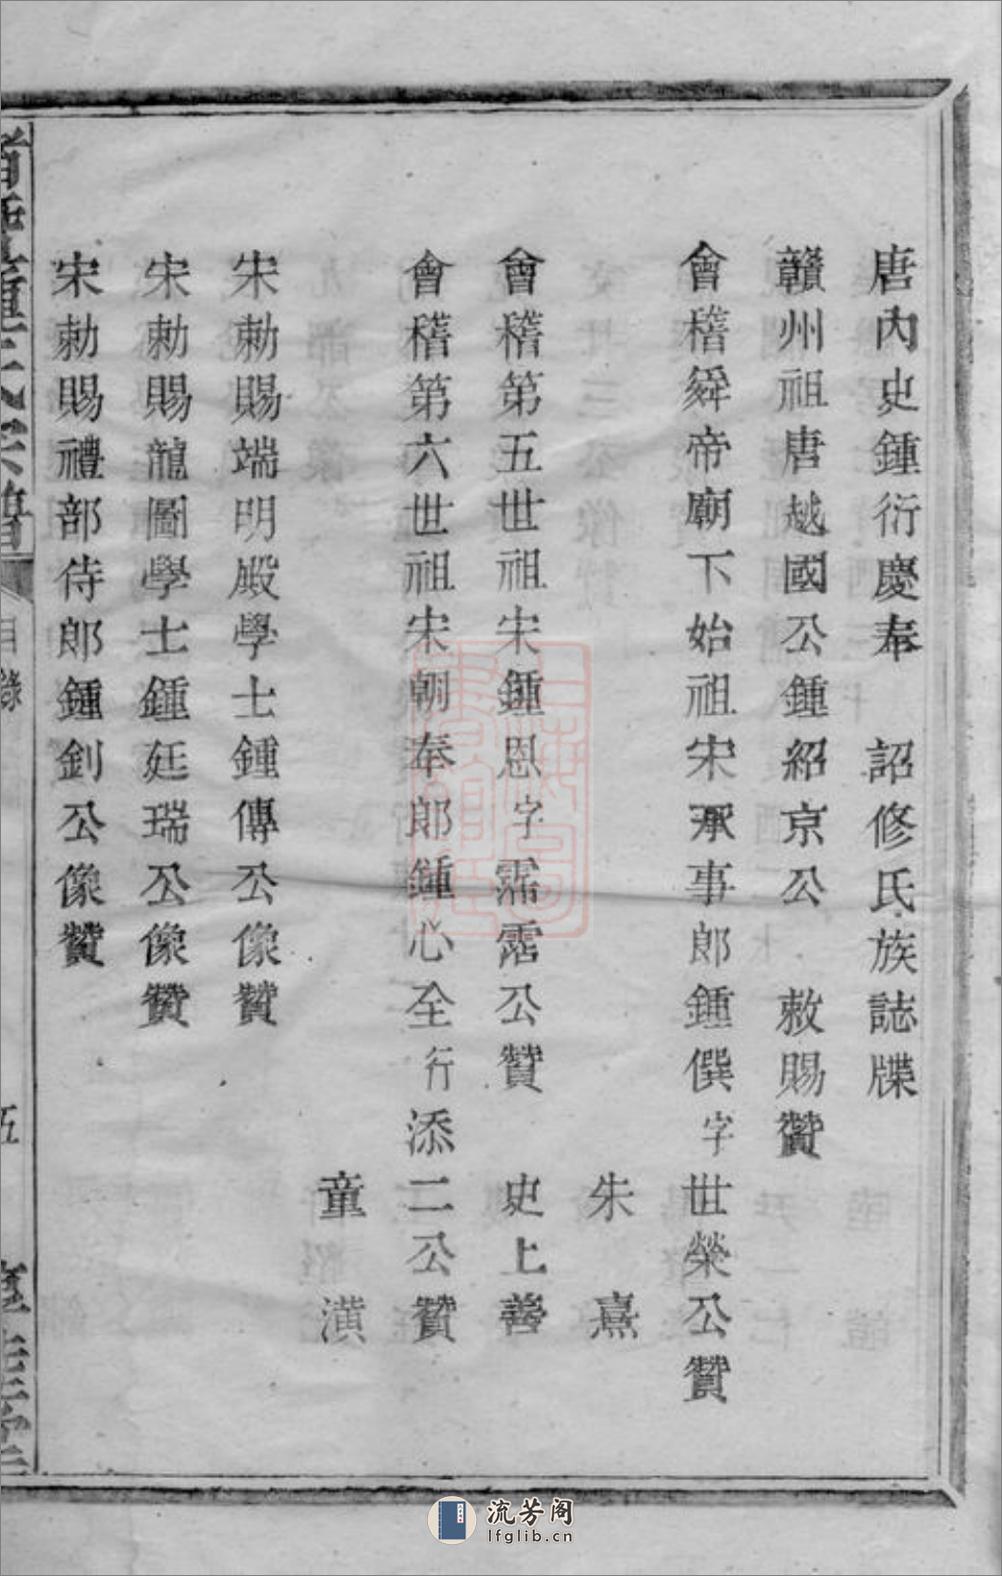 唐內史鍾衍慶奉　詔修氏族誌牒
贛州祖唐越國公鍾紹京公　敕賜贊
會稽舜帝廟下始祖宋承事郎鍾僎字世榮公贊
朱熹
會稽第五世祖宋鍾恩字霑露公贊　史上善
會稽第六世祖宋朝奉郎鍾心全行添二公贊
童潢
宋勅賜端明殿學士鍾傳公像贊
宋勅賜龍圖學士鍾廷瑞公像贊
宋勅賜禮部侍郎鍾釗公像贊
目錄
五
流芳阁
lfglib.cn